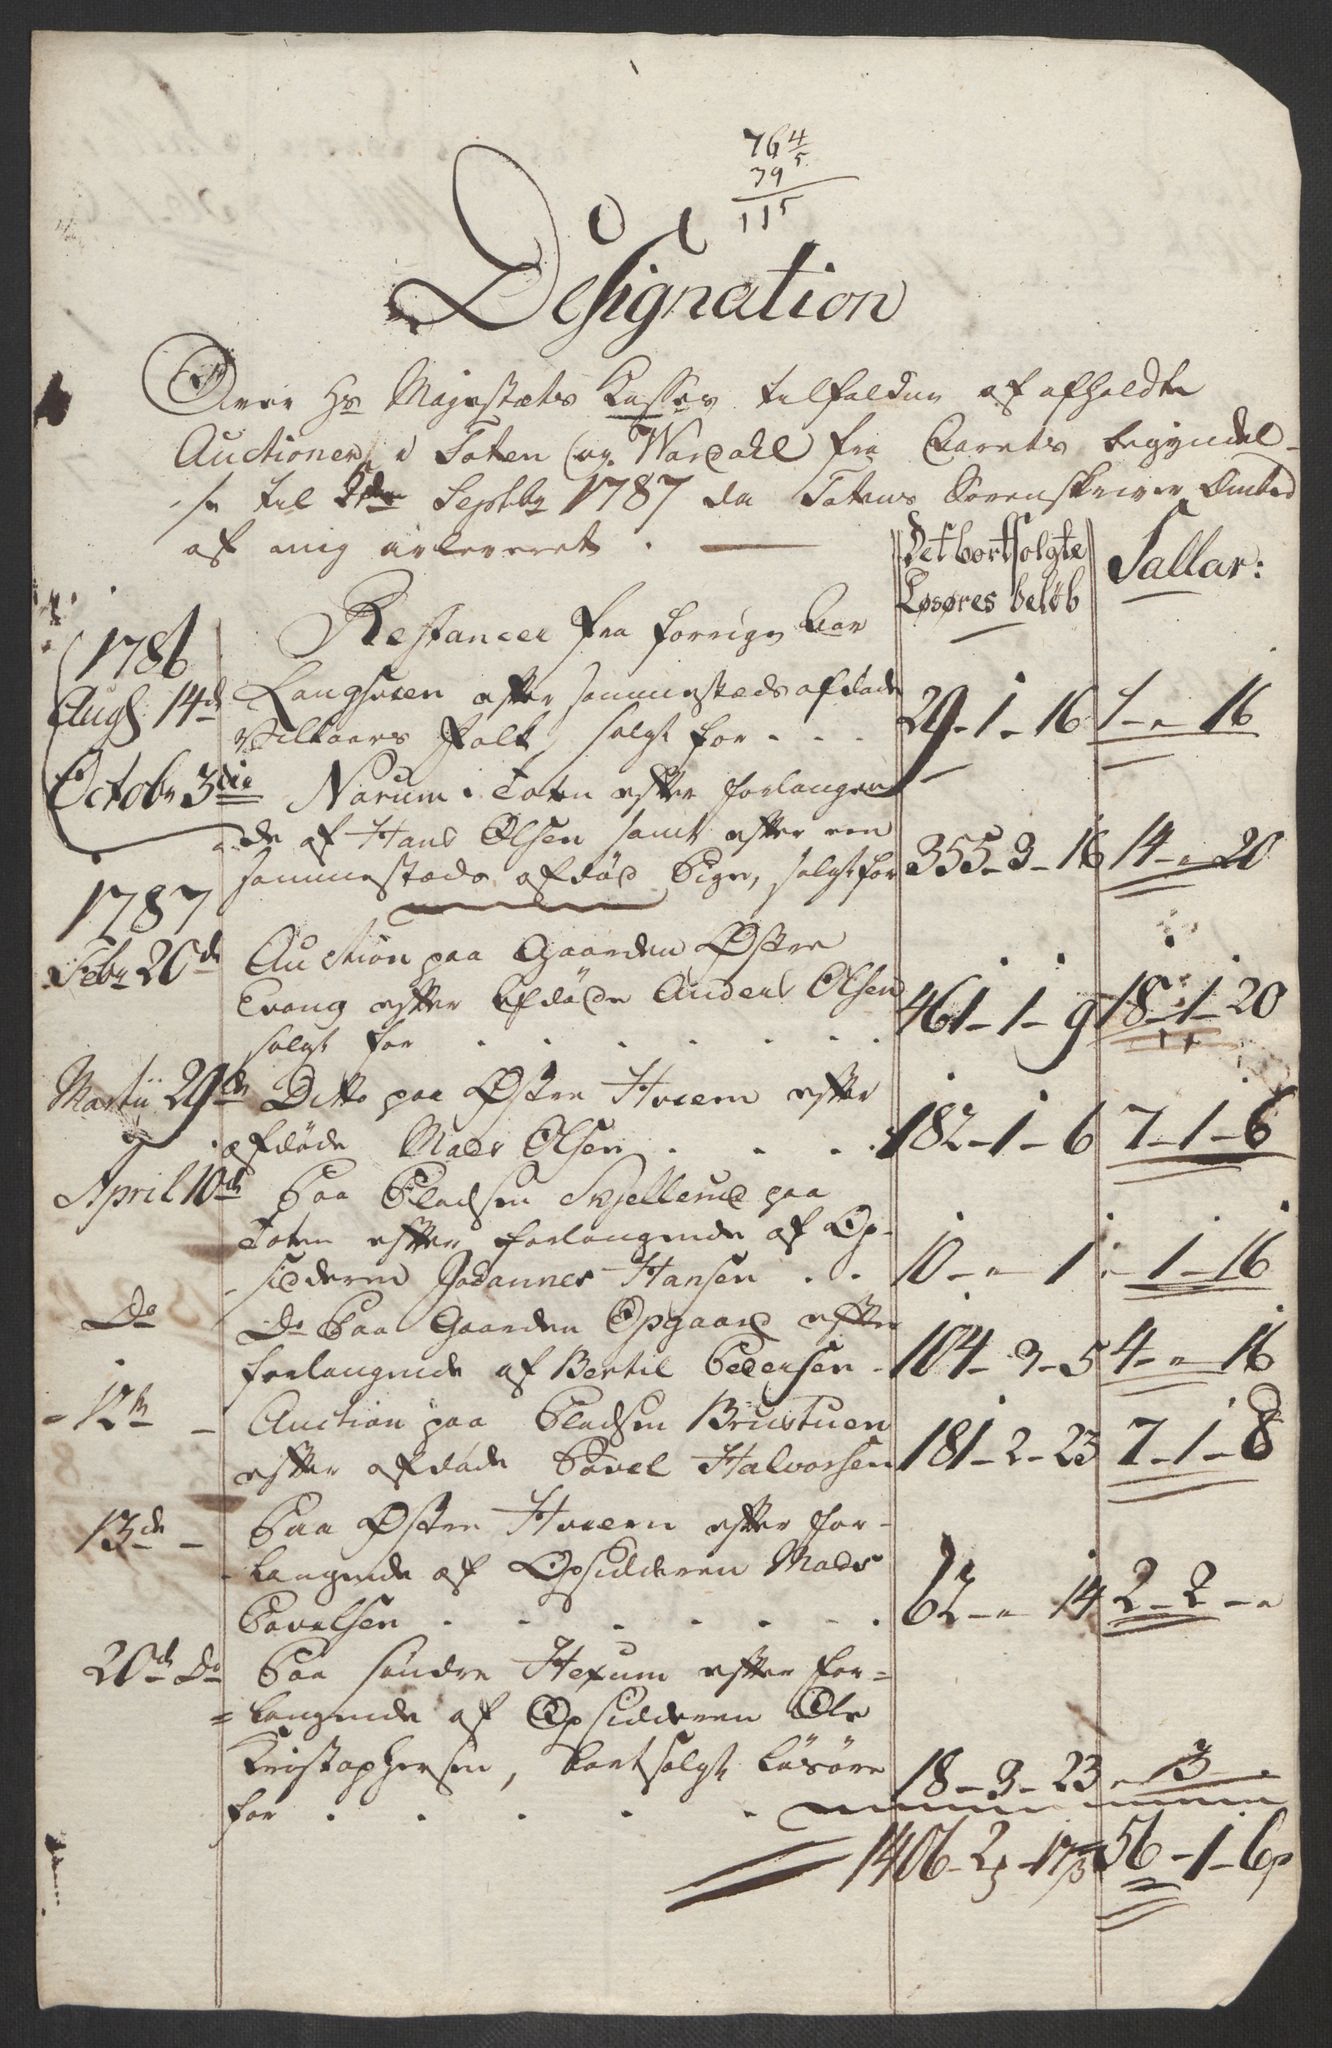 76 4/5
39
115
Designation
Over Hs Majestæts Casses tilfaldne af afholdte
Auctioner, i Toten og Wardahl fra Aarets begyndel-
se til Septbr 1787 da Totens Sorenskriver Embed
af mig afleveret .
Det bortsolgte
Løsøres beløb
Sallar:
1786
Restancer fra forrige Aar
Augs 14de
Langseien efter sammestæds afdøde
Vilkaars Folk, solgt for . . . 29 - 1 - 16 1 - " 16
Octobr 3die
Narum i Toten efter forlangen
de af Hans Olsen samt efter een
sammestæds afdød Pige, solgt for 355 - 3 - 16 14 - " 20
1787
Febr 20de
Auction paa Gaarden Østre
Evang efter Afdøde Anders Olsen
solgt for . . . . . . . . 461 - 1 - 9 18 - 1 - 20
Martii 29de
Ditto paa Østre Hveem efter
afdøde Mads Olsen . . . . 182 - 1 - 6 7 - 1 - 6
April 10de
Paa Pladsen Skjellerud paa
Toten efter forlangende af Op-
sidderen Johannes Hansen . . 10 - " 1 " 1 - 16
Do
Do Paa Gaarden Opgaard efter
forlangende af Bertil Pedersen - 104 - 3 - 5 4 - " 16
- 12te -
Auction paa Pladsen Brustuen
efter afdøde Povel Halvorsen 181 - 2 - 23 7 - 1 - 8
13de -
Paa Østre Hveem efter for-
langende af Opsidderen Mads
Povelsen . . . . . . . 62 - " 14 2 - 2 - "
20de Do
Paa søndre Hexum efter for-
= langende af Opsidderen Ole
Kristophersen, bortsolgt løsøre
for . . . . . 18 - 3 - 23 " 3 - "
1406 - 2 - 17 56 - 1 - 6